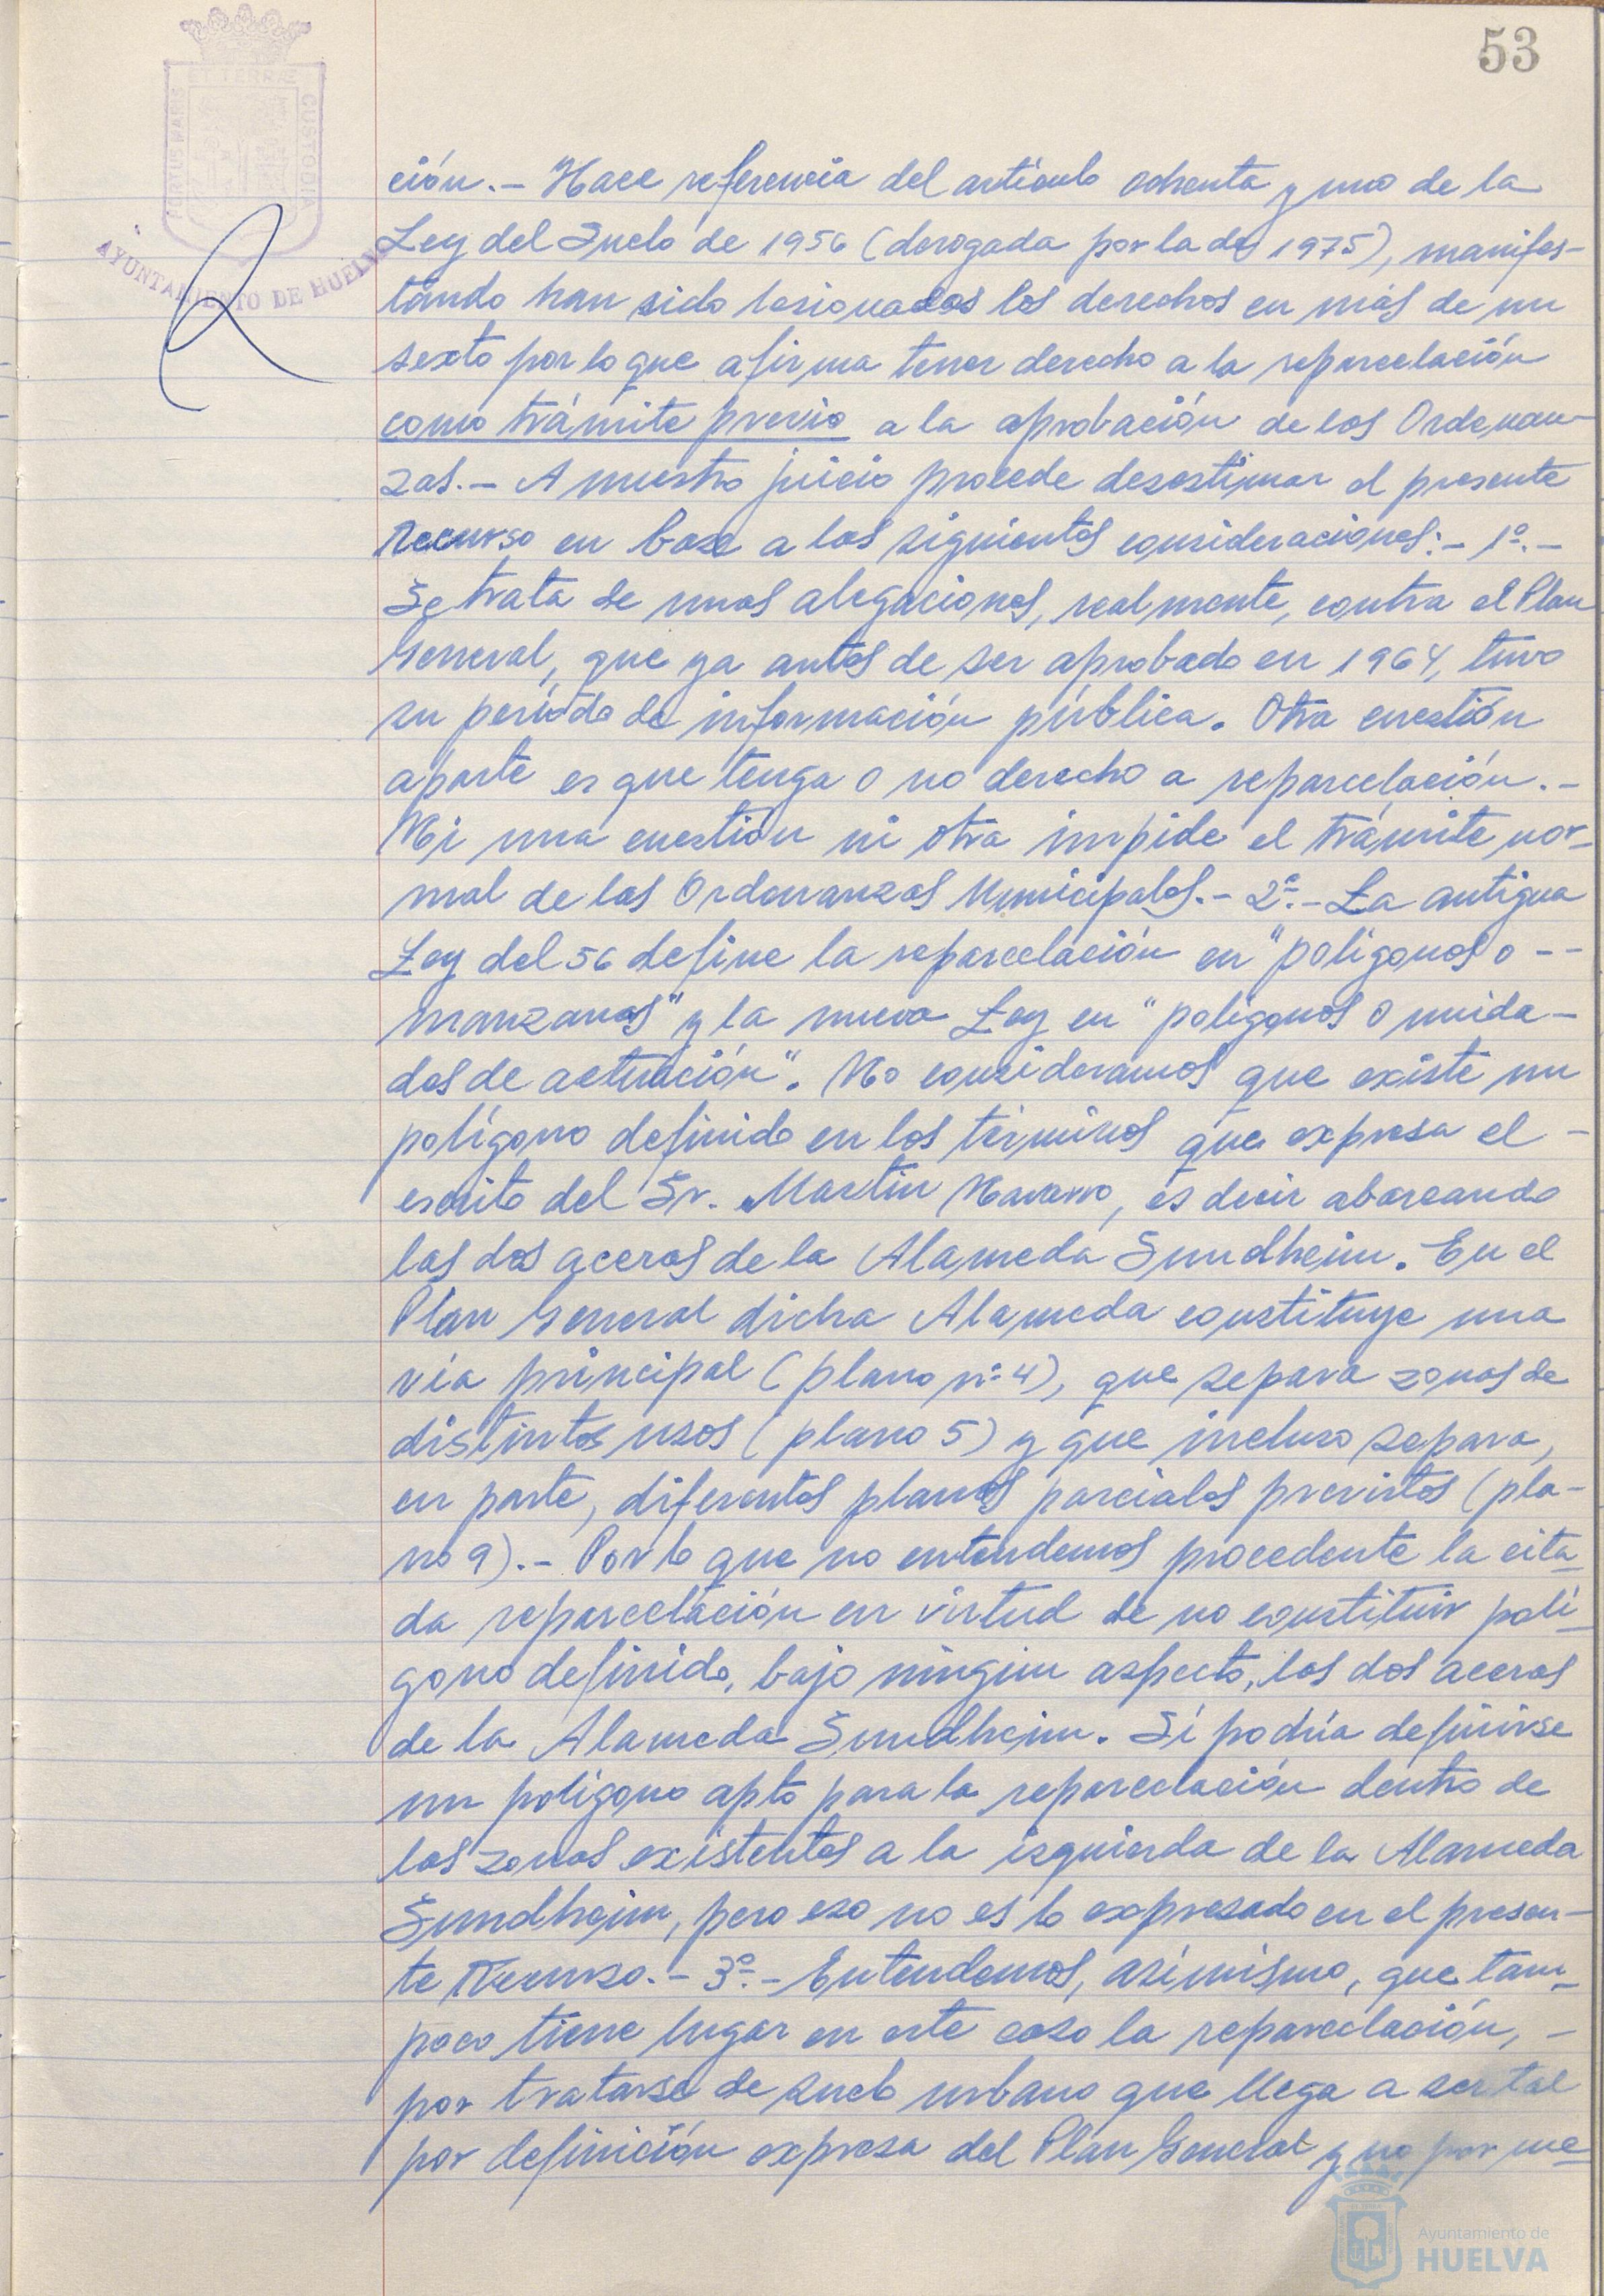 53
PORTUS MARIS ET TERRAE CUSTODIA
AYUNTAMIENTO DE HUELVA
ción.- Hace referencia del artículo ochenta y uno de la
Ley del Suelo de 1956 (derogada por la de 1975), manifes-
tando han sido lesionados los derechos en más de un
sexto por lo que afirma tener derecho a la reparcelación
como trámite previo a la aprobación de las Ordenan-
zas.- A nuestro juicio procede desestimar el presente
Recurso en base a las siguientes consideraciones:- 1º.-
Se trata de unas alegaciones, realmente, contra el Plan
General, que ya antes de ser aprobado en 1964, tuvo
su período de información pública. Otra cuestión
aparte es que tenga o no derecho a reparcelación.-
Ni una cuestión ni otra impide el trámite nor-
mal de las Ordenanzas Municipales.- 2º.- La antigua
Ley del 56 define la reparcelación en "polígonos o --
manzanas" y la nueva Ley en "polígonos o unida-
des de actuación". No consideramos que existe un
polígono definido en los términos que expresa el -
escrito del Sr. Martín Navarro, es decir abarcando
las dos aceras de la Alameda Sundheim. En el
Plan General dicha Alameda constituye una
vía principal (plano nº 4), que separa zonas de
distintos usos (plano 5) y que incluso separa,
en parte, diferentes planes parciales previstos (pla-
no 9).- Por lo que no entendemos procedente la cita-
da reparcelación en virtud de no constituir polí-
gono definido, bajo ningún aspecto, las dos aceras
de la Alameda Sundheim. Sí podría definirse
un polígono apto para la reparcelación dentro de
las zonas existentes a la izquierda de la Alameda
Sundheim, pero eso no es lo expresado en el presen-
te Recurso.- 3º.- Entendemos, asimismo, que tam-
poco tiene lugar en este caso la reparcelación, -
por tratarse de suelo urbano que llega a ser tal
por definición expresa del Plan General y no por me-
Ayuntamiento de
HUELVA